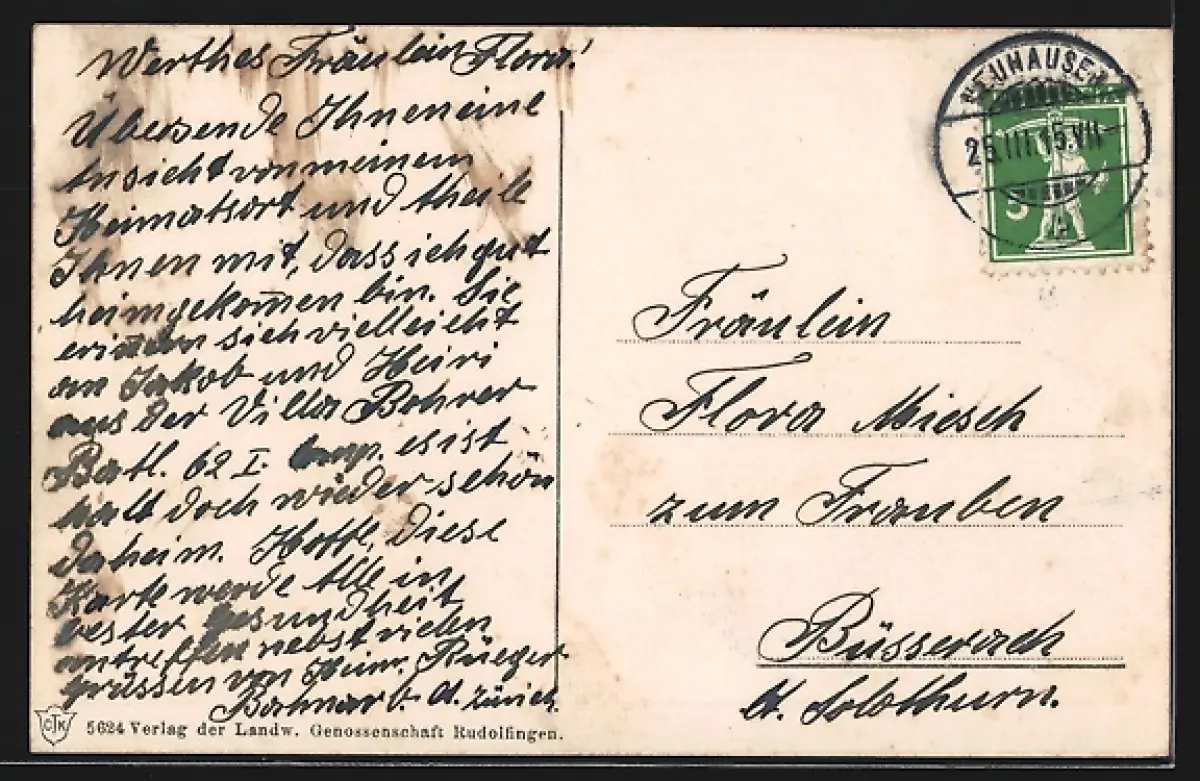 Werthes Fräulein Flora!
Übersende Ihnen eine
Ansicht von meinem
Heimatsort und theile
Ihnen mit, dass ich gut
heimgekom̄en bin. Sie
erinern sich vielleicht
an Jakob und Heiri
aus der Villa Bohrer
Batl. 62 I. Comp. es ist
halt doch wieder schön
daheim. Hoffe, diese
Karte werde Alle in
bester Gesundheit
antreffen nebst vielen
grüssen von Heinr. Rüeger
Ct. Zürich.
NEUHAUSEN
25.III.15.VII
5
Fräulein
Flora Miesch
zum Trauben
Büsserach
Ct. Solothurn.
CTK
5624 Verlag der Landw. Genossenschaft Rudolfingen.